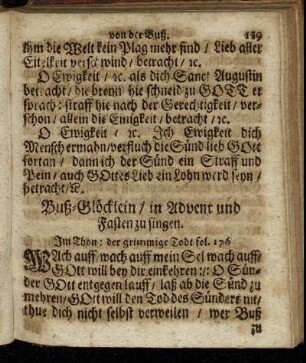 von der Buß. 189
Ihm die Welt kein Plag mehr find / Lieb aller
Eitelkeit verschwind / betracht / ꝛc.
O Ewigkeit / ꝛc. als dich Sanct Augustin
betracht / die brenn hie schneid zu GOTT er
sprach: straff hie nach der Gerechtigkeit / ver-
schon / allein die Ewigkeit / betracht / ꝛc.
O Ewigkeit / ꝛc. Ich Ewigkeit dich
Mensch ermahn / verfluch die Sünd lieb GOtt
fortan / dann ich der Sünd ein Straff und
Pein / auch GOttes Lieb ein Lohn werd seyn /
betracht / ꝛc.
Buß-Glöcklein / in Advent und
Fasten zu singen.
Im Thon: der grimmige Todt fol. 176
WAch auff / wach auff mein Sel wach auff /
GOtt will bey dir einkehren :/: O Sün-
der GOtt entgegen lauff / laß ab die Sünd zu
mehren / GOtt will den Tod des Sünders nit /
thue dich nicht selbst verweilen / wer Buß
zu